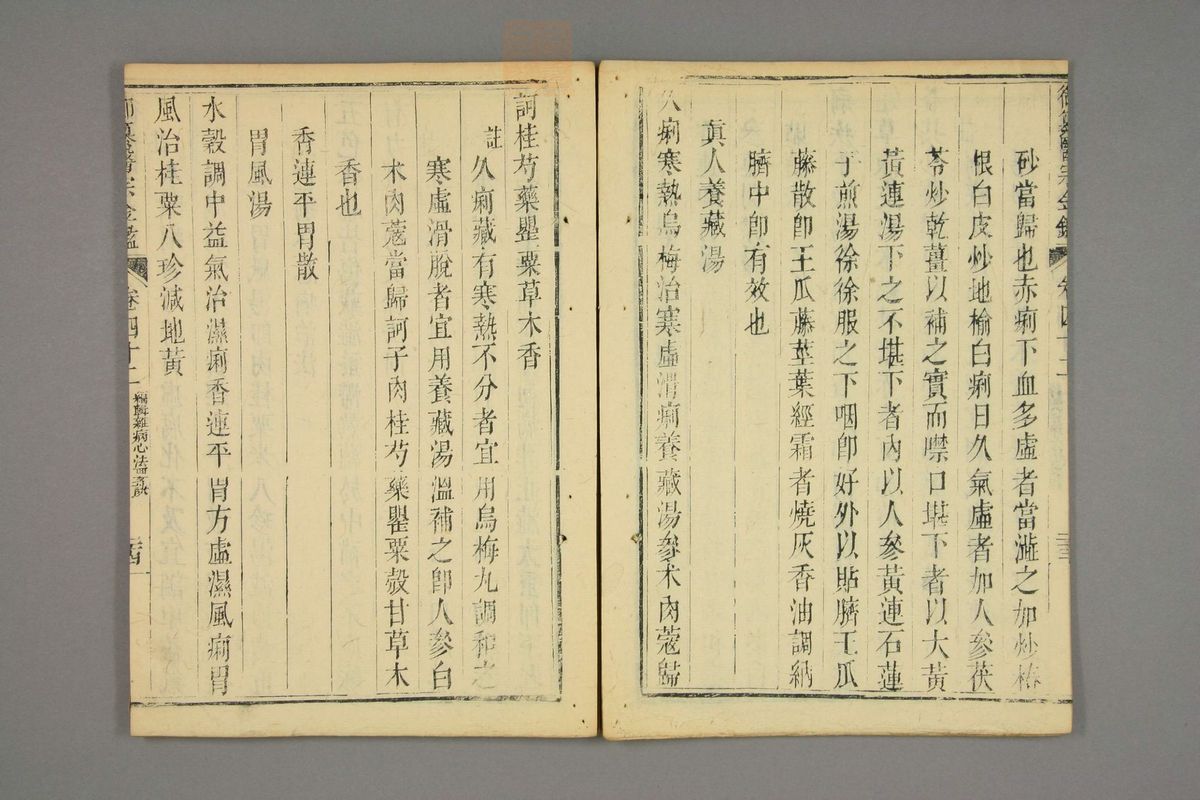 御纂醫宗金鑑 卷四十二
砂當歸也赤痢下血多虛者當澁之加炒椿
根白皮炒地榆白痢日久氣虛者加人參茯
苓炒乾薑以補之實而噤口堪下者以大黃
黃連湯下之不堪下者內以人參黃連石蓮
子煎湯徐徐服之下咽卽好外以貼臍王瓜
藤散卽王瓜藤莖葉經霜者燒灰香油調納
臍中卽有效也
眞人養藏湯
久痢寒熱烏梅治寒虛滑痢養藏湯參朮肉蔻歸
訶桂芍藥罌粟草木香
註 久痢藏有寒熱不分者宜用烏梅丸調和之
寒虛滑脫者宜用養藏湯溫補之卽人參白
朮肉蔻當歸訶子肉桂芍藥罌粟殼甘草木
香也
香連平胃散
胃風湯
水穀調中益氣治濕痢香連平胃方虛濕風痢胃
風治桂粟八珍減地黃
御纂醫宗金鑑 卷四十二 編輯雜病心法要訣